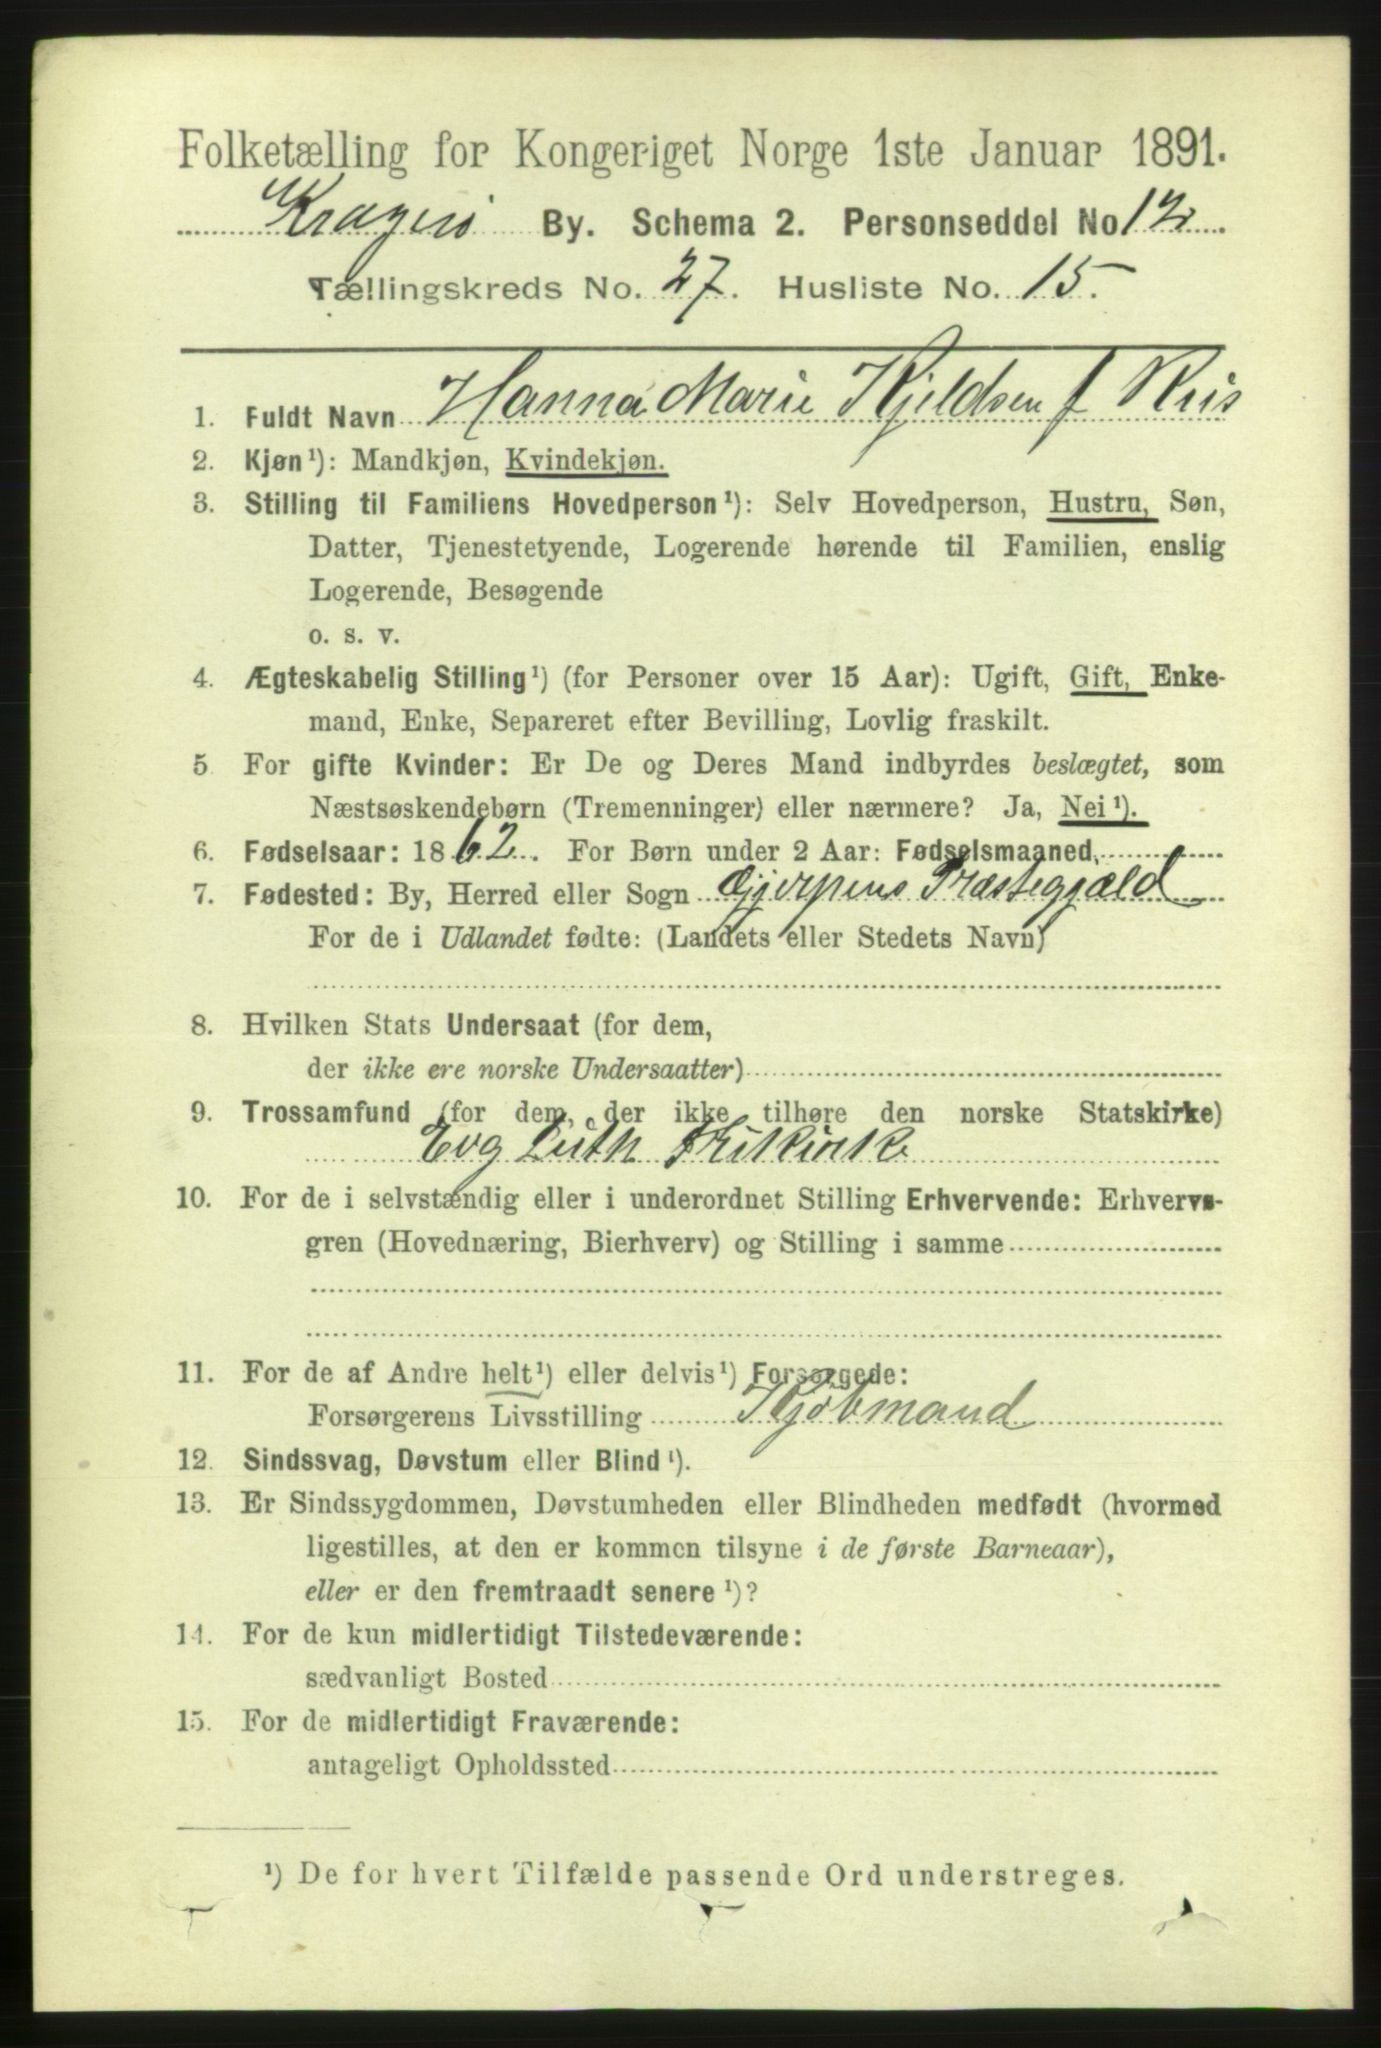 Folketælling for Kongeriget Norge 1ste Januar 1891.
Kragerø By. Schema 2. Personseddel No 12.
Tællingskreds No. 27. Husliste No. 15.
1. Fuldt Navn Hanna Marie Kjeldsen f Riis
2. Kjøn¹): Mandkjøn, Kvindekjøn.
3. Stilling til Familiens Hovedperson¹): Selv Hovedperson, Hustru, Søn,
Datter, Tjenestetyende, Logerende hørende til Familien, enslig
Logerende, Besøgende
o. s. v.
4. Ægteskabelig Stilling¹) (for Personer over 15 Aar): Ugift, Gift, Enke-
mand, Enke, Separeret efter Bevilling, Lovlig fraskilt.
5 For gifte Kvinder: Er De og Deres Mand indbyrdes beslægtet, som
Næstsøskendebørn (Tremenninger) eller nærmere? Ja, Nei¹).
6. Fødselsaar: 1862. For Børn under 2 Aar: Fødselsmaaned
7. Fødested: By, Herred eller Sogn Gjerpens Præstegjæld
For de i Udlandet fødte: (Landets eller Stedets Navn)
8. Hvilken Stats Undersaat (for dem,
der ikke ere norske Undersaatter)
9. Trossamfund (for dem, der ikke tilhøre den norske Statskirke)
Evg Luth Frikirke
10. For de i selvstændig eller i underordnet Stilling Erhvervende: Erhvervs-
gren (Hovednæring, Bierhverv) og Stilling i samme
11. For de af Andre helt¹) eller delvis¹) Forsørgede:
Forsørgerens Livsstilling Kjøbmand
12. Sindssvag, Døvstum eller Blind¹).
13. Er Sindssygdommen, Døvstumheden eller Blindheden medfødt (hvormed
ligestilles, at den er kommen tilsyne i de første Barneaar),
eller er den fremtraadt senere¹)?
14. For de kun midlertidigt Tilstedeværende:
sædvanligt Bosted
15. For de midlertidigt Fraværende:
antageligt Opholdssted
¹) De for hvert Tilfælde passende Ord understreges.